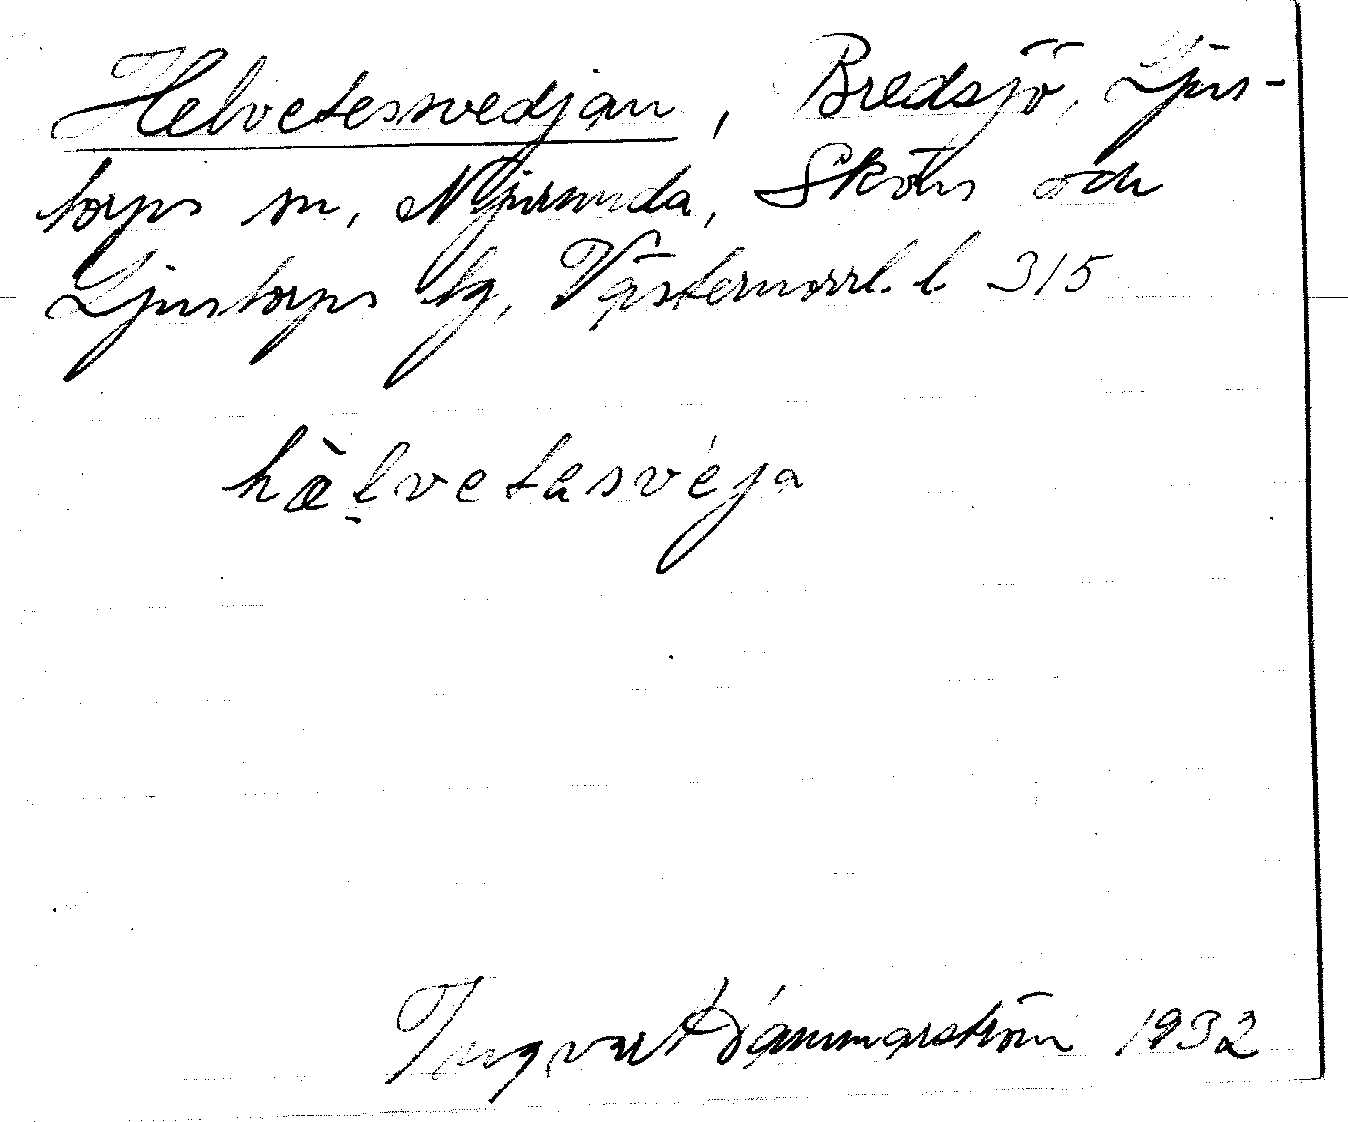 Helvetessvedjan, Bredsjö, Ljus-
torps sn, Njurunda, Sköns och
Ljustorps tg, Västernorrl. l. 315
hæ̀l̠vetasvéja
Ingvar Hammarström 1932